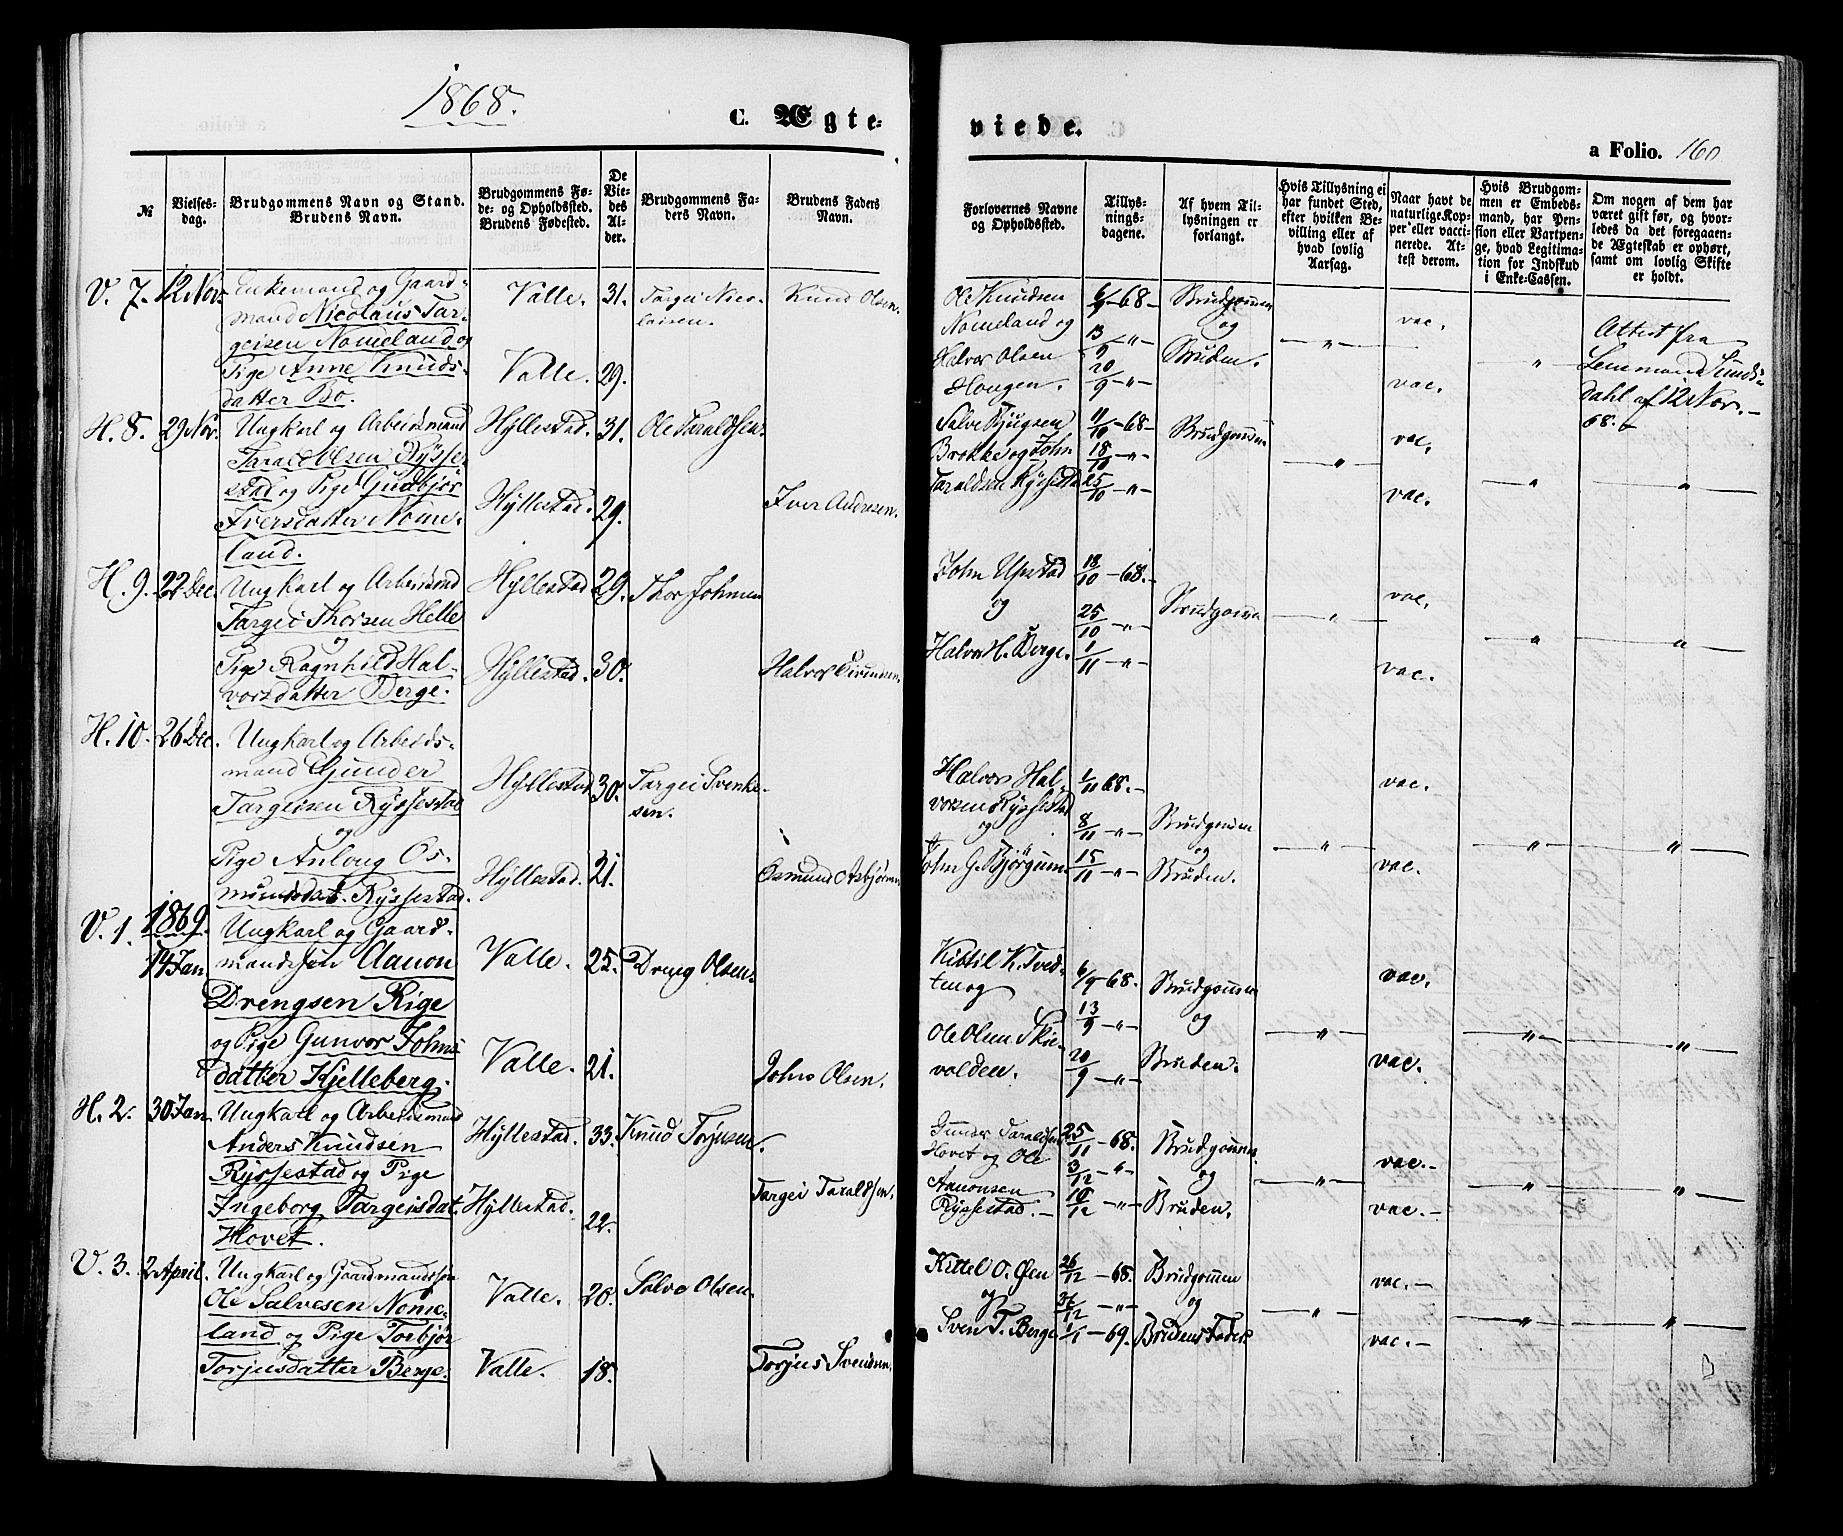 1868.
C. Ægte-
viede.
a Folio. 160
№
Vielses-
dag.
Brudgommens Navn og Stand.
Brudens Navn.
Brudgommens Fø-
de- og Opholdssted.
Brudens Fødested.
De
Vie-
des
Al-
der.
Brudgommens Fa-
ders Navn.
Brudens Faders
Navn.
Forlovernes Navne
og Opholdssted.
Tillys-
nings-
dagene.
Af hvem Til-
lysningen er
forlangt.
Hvis Tillysning ei
har fundet Sted,
efter hvilken Be-
villing eller af
hvad lovlig
Aarsag.
Naar havt de
naturlige Kop-
per eller vacci-
nerede. At-
test derom.
Hvis Brudgom-
men er Embeds-
mand, har Pen-
sion eller Vartpen-
ge, hvad Legitima-
tion for Indskud
i Enke-Cassen.
Om nogen af dem har
været gift før, og hvor-
ledes da det foregaaen-
de Ægteskab er ophørt,
samt om lovlig Skifte
er holdt.
V. 7. 12 Nov.
Enkemand og Gaard-
mand Nicolaus Tar-
geisen Nomeland og
Pige Anne Knuds-
datter Bø.
Valle. 31.
Valle. 29.
Targei Nico-
laisen.
Knud Olsen.
Ole Knudsen
Nomeland og
Halvor Olsen
Haugen.
6/9 -68-
13/9 -"-
20/9 -"-
Brudgommen
og
Bruden.
"
vac.
vac.
"
Attest fra
Lensmand Sunds-
dahl af 12 Nov.
68.
H. 8. 29 Nov.
Ungkarl og Arbeidsmand
Tarald Olsen Rysse-
stad og Pige Gunbjør
Iversdatter Nome-
land.
Hyllestad. 31.
Hyllestad. 29.
Ole Taraldsen.
Iver Andersen.
Salve Bjugsen
Brokke og John
Taraldsen Ryssestad
11/10 -68-
18/10 -"-
25/10 -"-
Brudgommen
"
vac.
vac.
"
"
H. 9. 22 Dec.
Ungkarl og Arbeidsmd
Targei Thorsen Helle
og
Pige Ragnhild Hal-
vorsdatter Berge.
Hyllestad 29.
Hyllestad. 30.
Thor Johnsen
Halvor
John Upstad
og
Halvor H. Berge.
18/10 -68.-
25/10 -"-
1/11 -"-
Brudgommen
"
vac.
vac.
"
"
H. 10. 26 Dec.
Ungkarl og Arbeids-
mand Gunder
Targeisen Ryssestad
og
Pige Anlaug Os-
mundsdat. Ryssestad.
Hyllestad 30.
Hyllestad. 21.
Targei Svenke-
sen.
Osmund Asbjørnsen
Halvor Hal-
vorsen Ryssestad
og
John G. Bjørgum
1/11 68.-
8/11 -"-
15/11 -"-
Brudgommen
og
Bruden.
"
vac.
vac.
"
"
1869.
V. 1. 14 Jan.
Ungkarl og Gaard-
mandssøn Aanon
Drengsen Rige
og Pige Gunvor Johns-
datter Kjelleberg.
Valle. 25.
Valle. 21.
Dreng Olsen.
John Olsen.
Kittil K. Tved-
ten og
Ole Olsen Skie-
volden.
6/9 -68.
13/9 -"-
20/9 -"-
Brudgommen
og
Bruden.
"
vac.
vac.
"
"
H. 2. 30 Jan.
Ungkarl og Arbeidsmand
Anders Knudsen
Ryssestad og Pige
Ingeborg Targeisdat.
Hovet.
Hyllestad. 33.
Hyllestad. 22.
Knud Torjusen.
Targei Taraldsen.
Gunder Taraldsen
Hovet og Ole
Aanonsen
Ryssestad.-
25/11 -68.
3/12 -"-
10/12 -"-
Brudgommen
og
Bruden.
"
vac.-
vac.-
"
"
V. 3. 2 April.
Ungkarl og Gaardmandssøn
Ole Salvesen Nome-
land og Pige Torbjør
Torjusdatter Berge.
Valle. 20.
Valle. 18.
Salve Olsen.
Torjus Svendsen.
Kittel O. Øen
og
Sven T. Berge
26/12 -68.
1/1 -69.
Brudgommen
og
Brudens Fader.
"
vac.-
vac.-
"
"